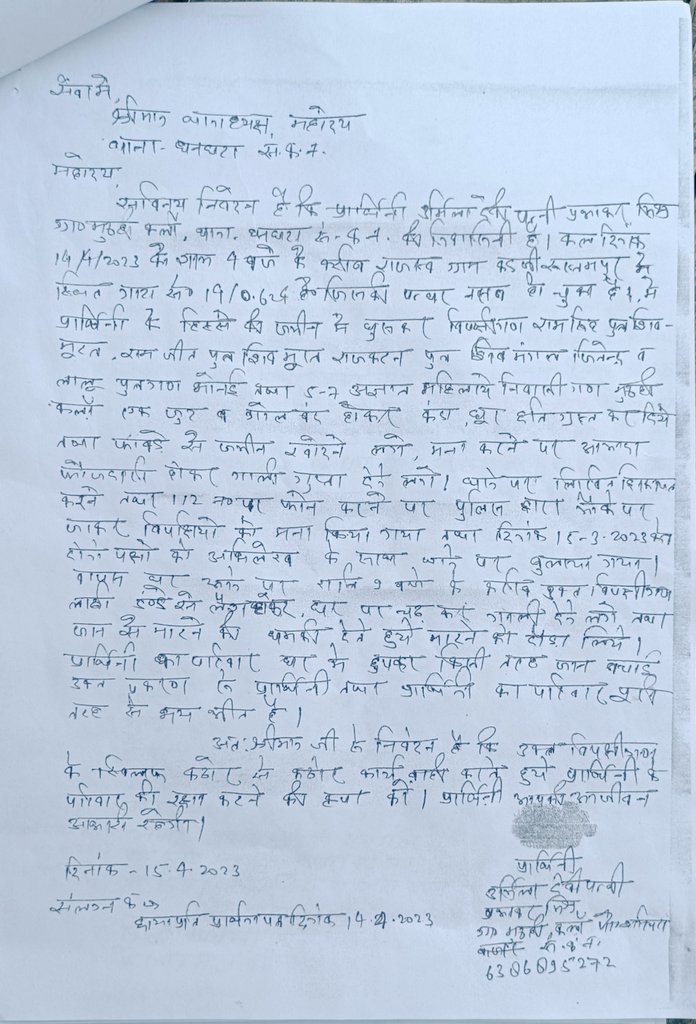 सेवा में,
श्रीमान थानाध्यक्ष, महोदय
थाना- धनघटा सं. क. न.
महोदय,
सविनय निवेदन है कि प्रार्थिनी उर्मिला देवी पत्नी प्रभाकर
ग्राम मुठही कलां, थाना. धनघटा सं. क. न. की निवासिनी है। कल दिनांक
14/4/2023 को शाम 4 बजे के करीब राजस्व ग्राम में
स्थित गाटा सं० 19/0.626 है० जिसकी पत्थर नसब हो चुका है। में
प्रार्थिनी के हिस्से की जमीन में घुसकर विपक्षीगण पुत्र शिव-
मूरत, राम जीत पुत्र शिव मूरत राजकरन पुत्र शिव मंगल जितेन्द्र व
लालू पुत्रगण तथा 5-7 अज्ञात महिलाये निवासी गण मुठही
कलाँ एक जुट व गोल बंद होकर कंडा, घूरा क्षतिग्रस्त कर दिये
तथा फावड़े से जमीन खोदने लगे, मना करने पर आमादा
फौजदारी होकर गाली गुप्ता देने लगे। थाने पर लिखित शिकायत
करने तथा 112 न० पर फोन करने पर पुलिस द्वारा मौके पर
जाकर विपक्षियों को मना किया गया तथा दिनांक 15-3-2023 को
दोनो पक्षो को अभिलेख के साथ थाने पर बुलाया गया।
वापस घर आने पर रात्रि 9 बजे के करीब उक्त विपक्षीगण
लाठी डण्डे से लैश होकर, घर पर चढ़ कर गाली देने लगे तथा
जान से मारने की धमकी देते हुये मारने को दौड़ा लिये।
प्रार्थिनी का परिवार घर में छुपकर किसी तरह जान बचाई
उक्त प्रकरण से प्रार्थिनी तथा प्रार्थिनी का परिवार पूरी
तरह से भय भीत है।
अतः श्रीमान जी से निवेदन है कि उक्त विपक्षीगण
के खिलाफ कठोर से कठोर कार्यवाही करते हुये प्रार्थिनी के
परिवार की रक्षा करने की कृपा करें। प्रार्थिनी आपकी आजीवन
आभारी रहेगी।
दिनांक - 15.4.2023
प्रार्थिनी
उर्मिला देवी पत्नी
संलग्नक
छायाप्रति प्रार्थना पत्र दिनांक 14.4.2023
ग्रा० मुठही कलाँ
सं. क. न.
6306095272